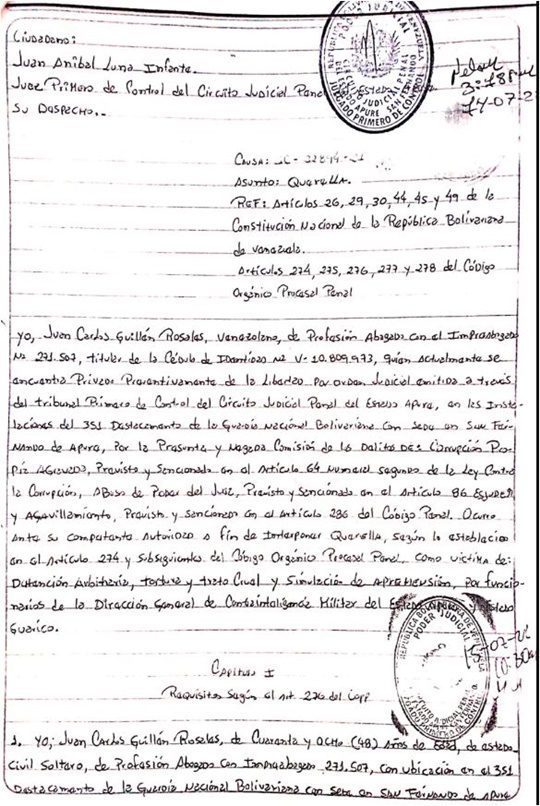 Ciudadano:
Juan Anibal Luna Infante.
Juez Primero de Control del Circuito Judicial Penal
Su Despacho.-
3:18
14-07-2
REPÚBLICA BOLIVARIANA DE VENEZUELA
PODER JUDICIAL
CIRCUITO JUDICIAL PENAL
ESTADO APURE SAN FERNANDO
JUZGADO PRIMERO DE CONTROL
Causa:
Asunto: Querella.
REF: Artículos 26, 29, 30, 44, 45 y 49 de la
Constitución Nacional de la República Bolivariana
de Venezuela.
Artículos 274, 275, 276, 277 y 278 del Código
Orgánico Procesal Penal
Yo, Juan Carlos Guillén Rosales, Venezolano, de Profesión Abogado con el Impreabogado
Nº 271.507, titular de la Cédula de Identidad Nº V-10.809.973, quien actualmente se
encuentra Privado Preventivamente de la Libertad por orden Judicial emitida a través
del tribunal Primero de Control del Circuito Judicial Penal del Estado Apure, en las Insta-
laciones del 351 Destacamento de la Guardia Nacional Bolivariana con sede en San Fer-
nando de Apure, Por la Presunta y Negada Comisión de los Delitos de: Corrupción Pro-
pia Agravada, Previsto y Sancionado en el Artículo 64 Numeral segundo de la Ley Contra
la Corrupción, Abuso de Poder del Juez, Previsto y sancionado en el Artículo 86
y Agavillamiento, Previsto y sancionado en el Artículo 286 del Código Penal. Ocurro
Ante su competente Autoridad a fin de Interponer Querella, según lo establecido
en el Artículo 274 y subsiguientes del Código Orgánico Procesal Penal, como víctima de:
Detención Arbitraria, Tortura y trato Cruel y Simulación de Aprehensión, Por funcio-
narios de la Dirección General de Contrainteligencia Militar del Estado
Guarico.
REPÚBLICA BOLIVARIANA DE VENEZUELA
PODER JUDICIAL
15-07-22
10:30
Capitulo I
Requisitos Según el Art. 276 del Copp
1. Yo, Juan Carlos Guillén Rosales, de Cuarenta y Ocho (48) Años de Edad, de estado
civil Soltero, de Profesión Abogado con Impreabogado 271.507, con ubicación en el 351
Destacamento de la Guardia Nacional Bolivariana con sede en San Fernando de Apure